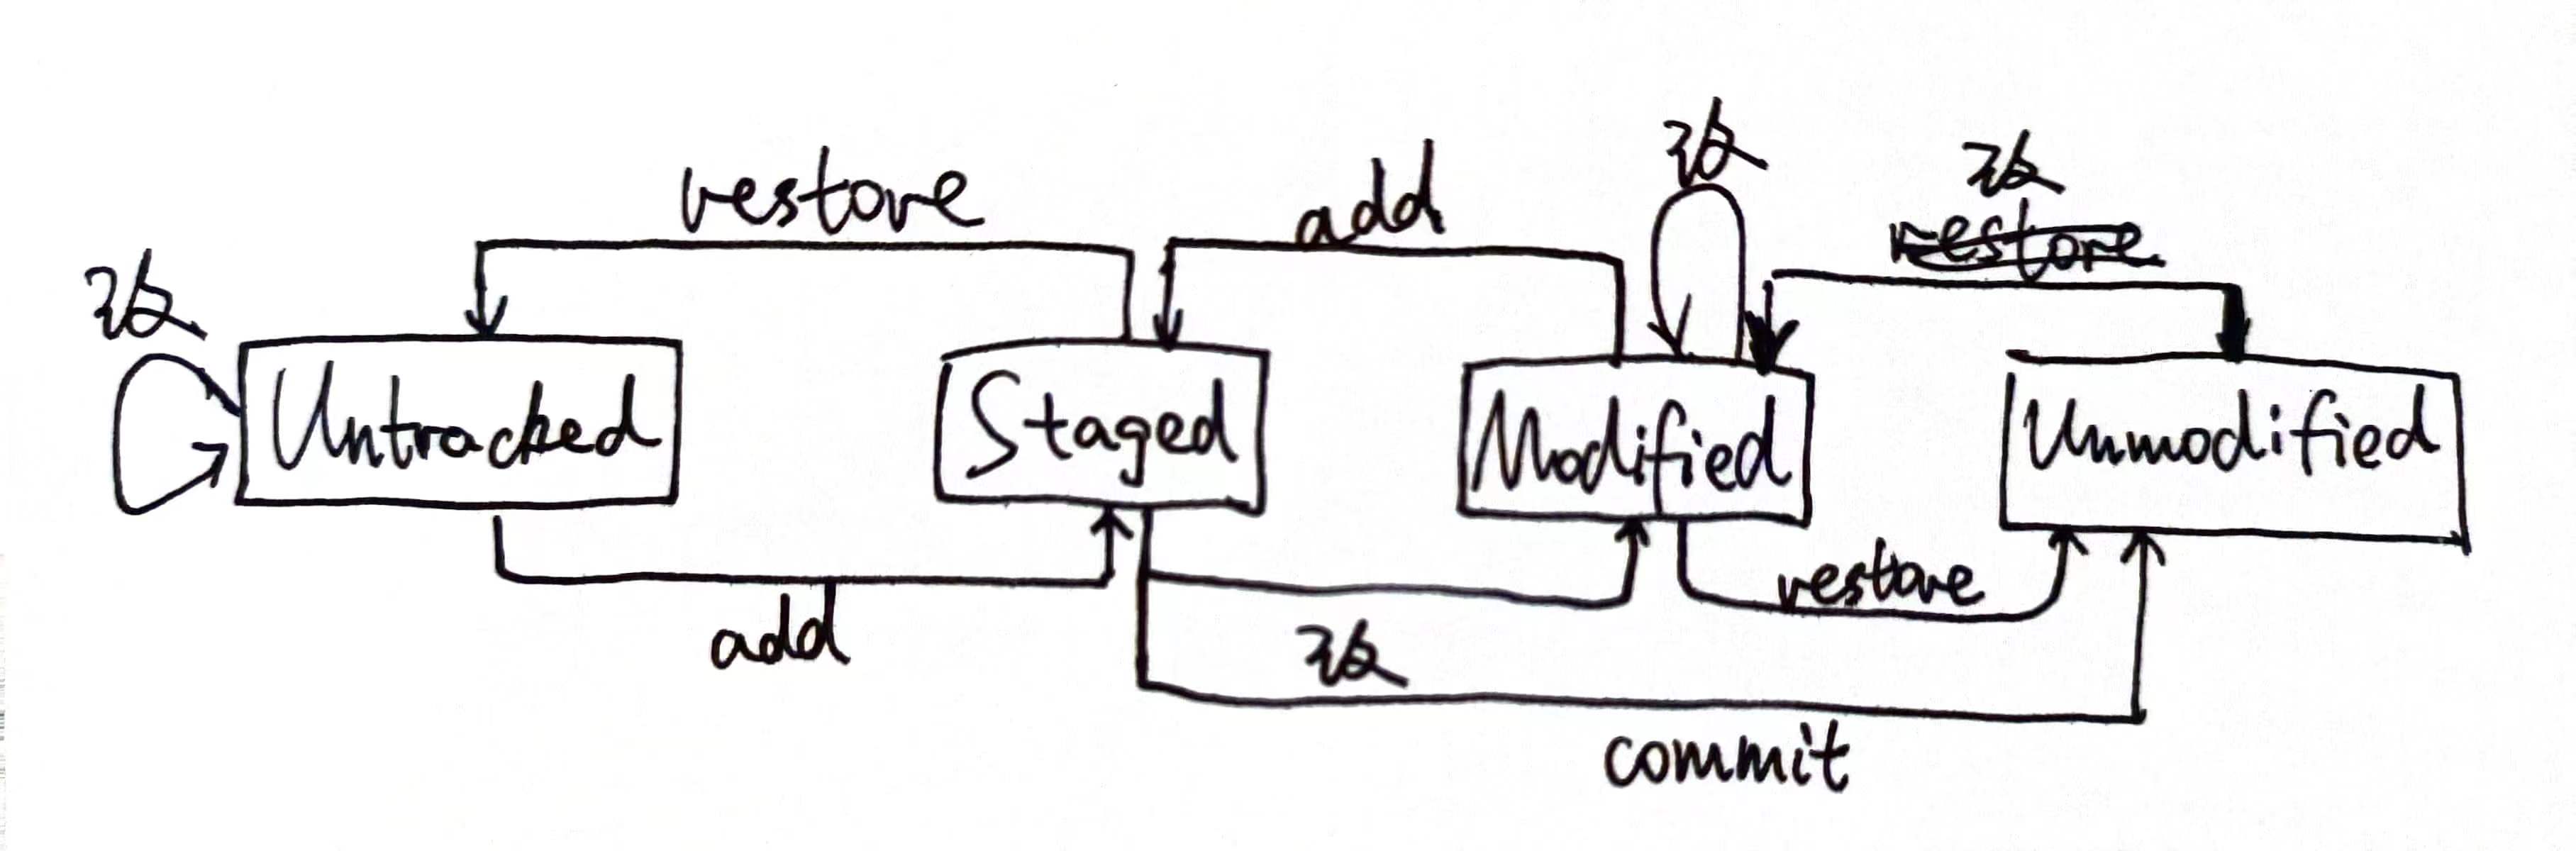 改
restore
add
改
改
restore
Untracked
Staged
Modified
Unmodified
add
改
restore
commit